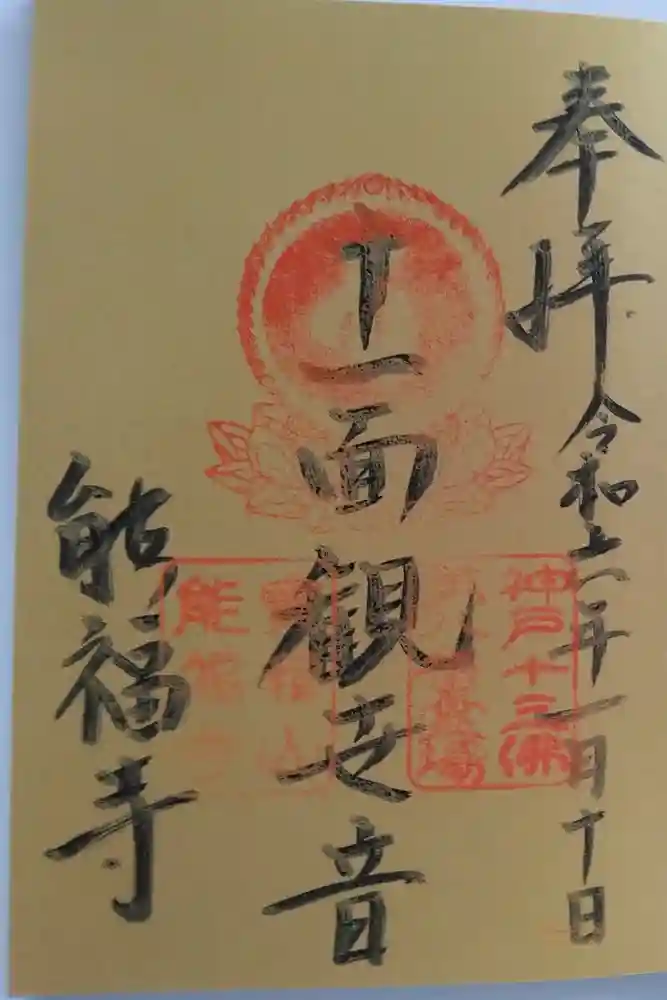 奉拝 令和六年一月十日
十一面観世音
能福寺
神戸十三佛
霊場
能福寺